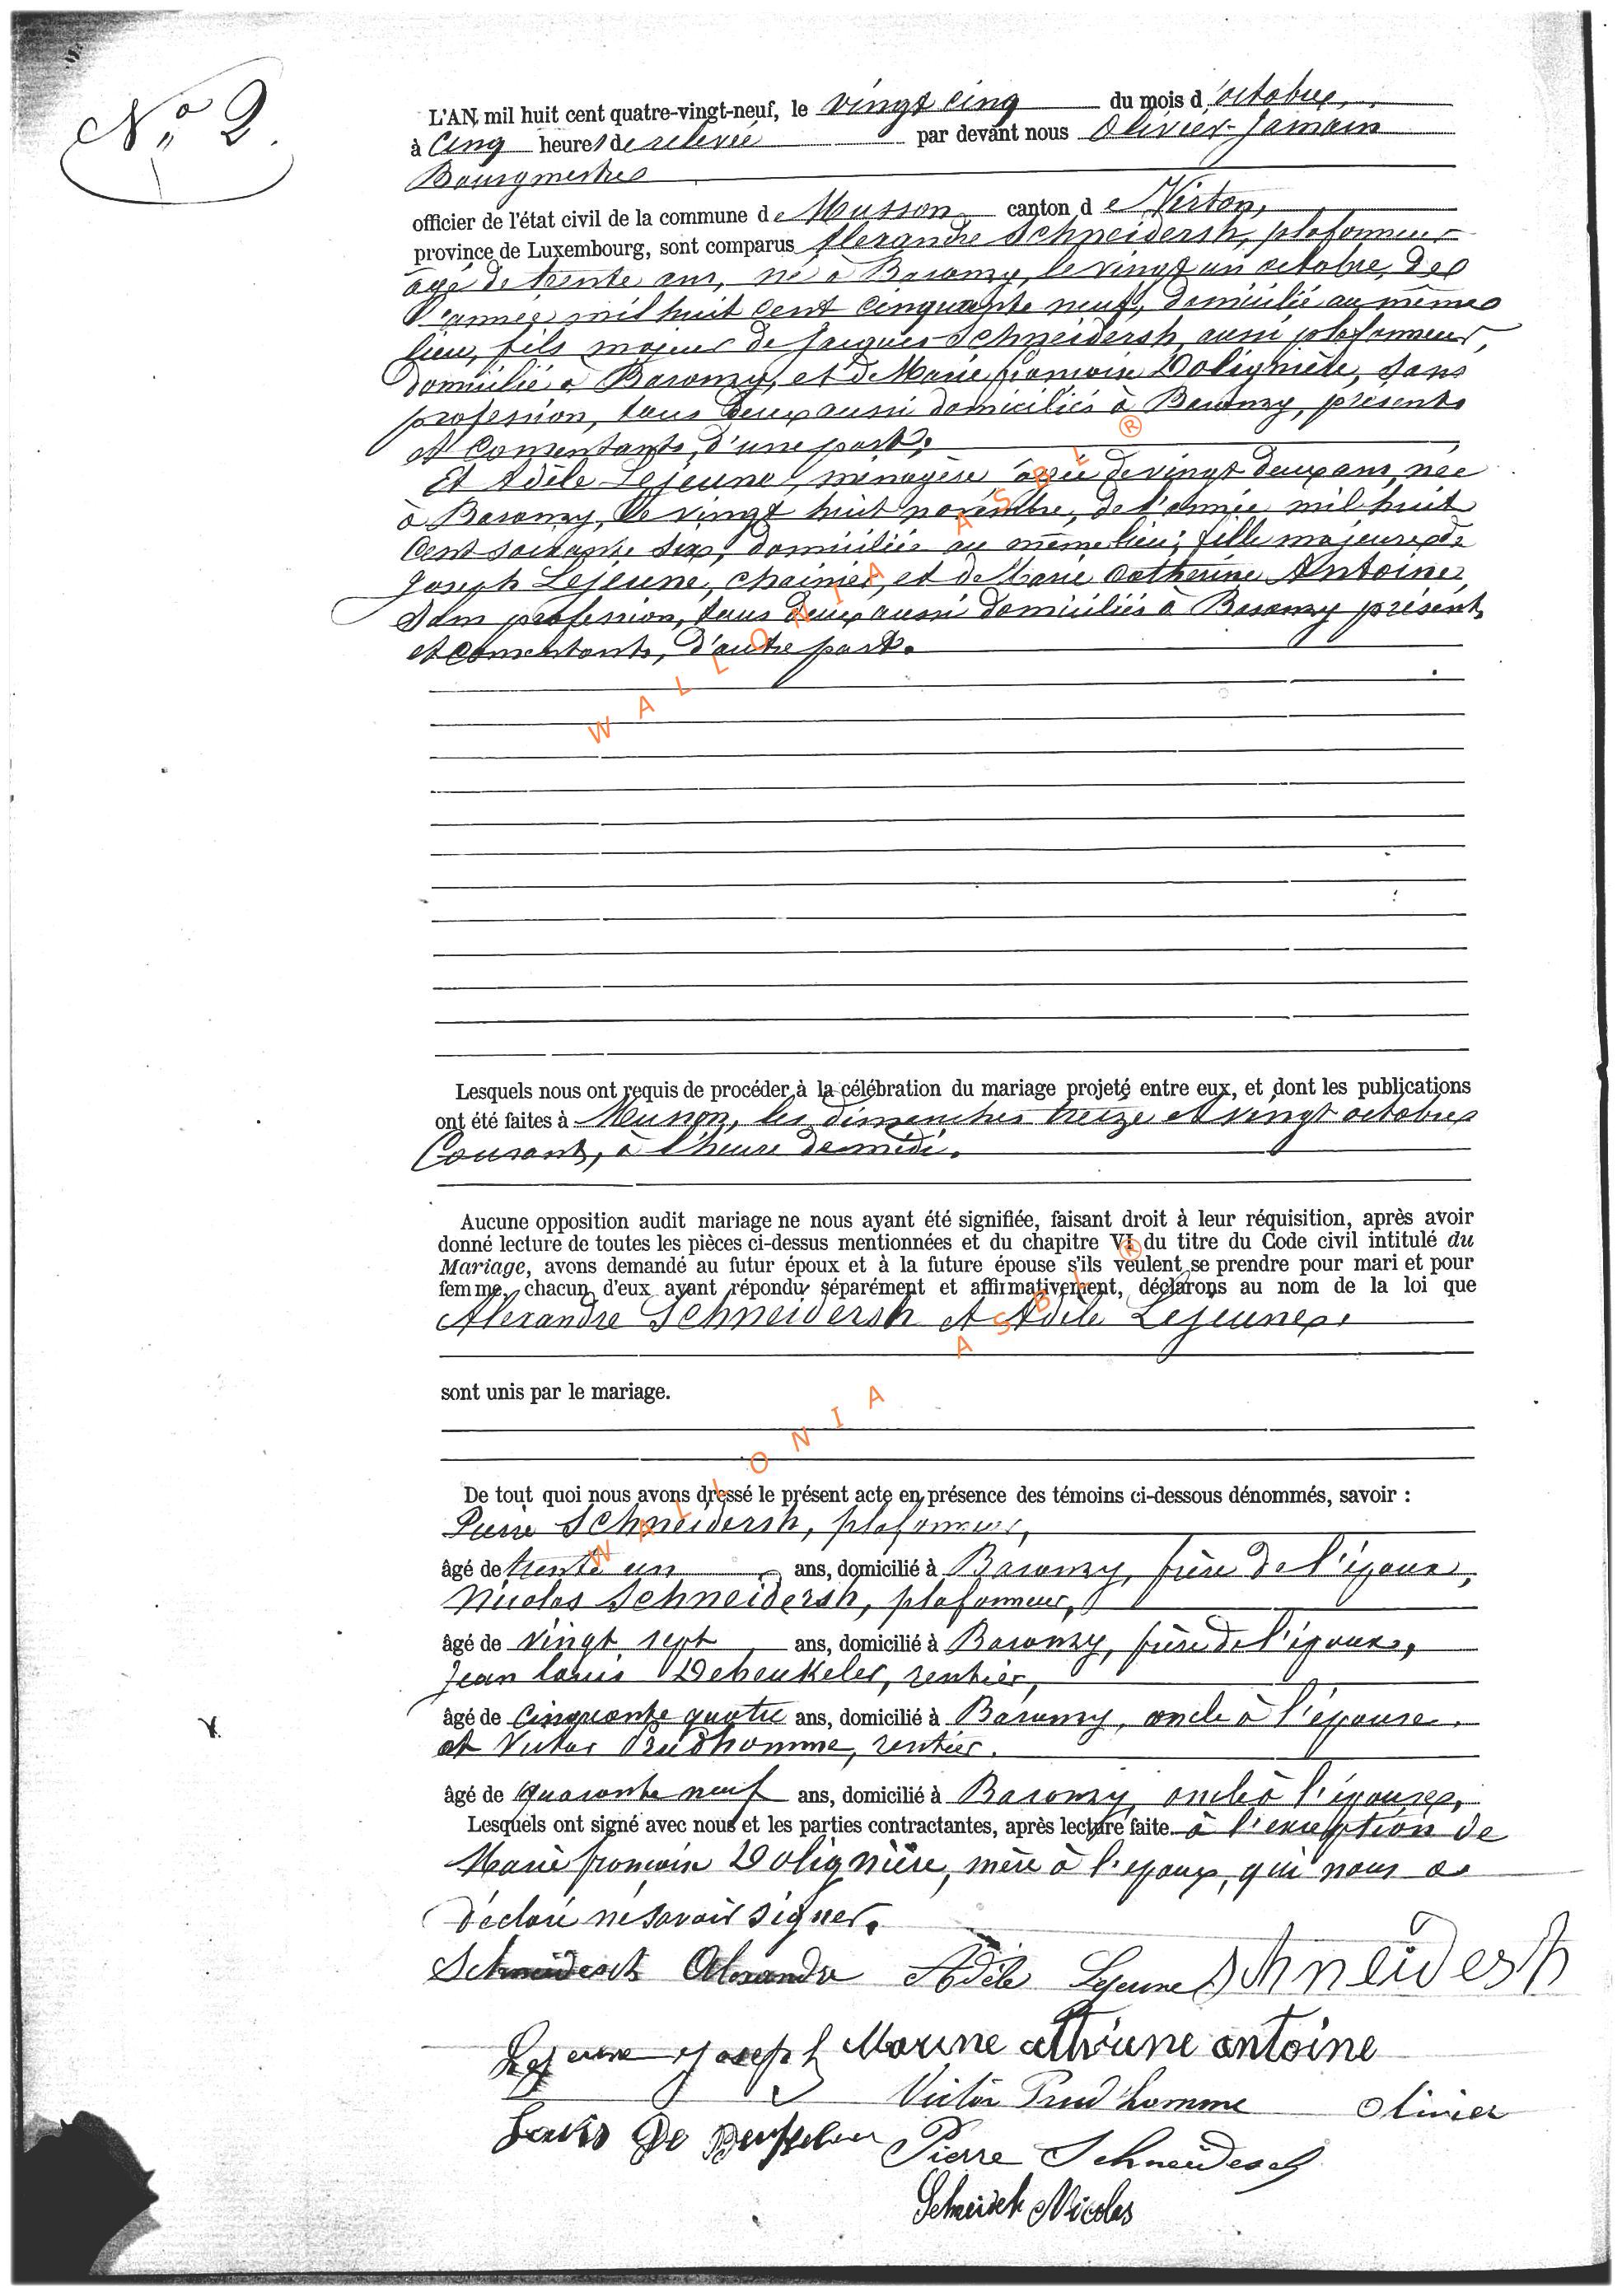 N° 2.
L'AN mil huit cent quatre-vingt-neuf, le vingt cinq du mois d'octobre,
à cinq heures de relevée par devant nous Olivier Jamain
Bourgmestre
officier de l'état civil de la commune de Musson canton de Virton,
province de Luxembourg, sont comparus Alexandre Schneidersh, plafonneur
âgé de trente ans, né à Baranzy, le vingt un octobre, de
l'année mil huit cent cinquante neuf, domicilié au même
lieu, fils majeur de Jacques Schneidersh, aussi plafonneur,
domicilié à Baranzy, et de Marie françoise Dolignière, sans
profession, tous deux aussi domiciliés à Baranzy, présents
et consentants, d'une part.
Et Adèle Lejeune, ménagère âgée de vingt deux ans, née
à Baranzy, le vingt huit novembre, de l'année mil huit
cent soixante six, domiciliée au même lieu, fille majeure de
Joseph Lejeune, chainier, et de Marie Catherine Antoine,
sans profession, tous deux aussi domiciliés à Baranzy présents
et consentants, d'autre part.
WALLONIA ASBL ®
Lesquels nous ont requis de procéder à la célébration du mariage projeté entre eux, et dont les publications
ont été faites à Musson, les dimanches treize et vingt octobre
courant, à l'heure de midi.
Aucune opposition audit mariage ne nous ayant été signifiée, faisant droit à leur réquisition, après avoir
donné lecture de toutes les pièces ci-dessus mentionnées et du chapitre VI du titre du Code civil intitulé du
Mariage, avons demandé au futur époux et à la future épouse s'ils veulent se prendre pour mari et pour
femme, chacun d'eux ayant répondu séparément et affirmativement, déclarons au nom de la loi que
Alexandre Schneidersh et Adèle Lejeune,
sont unis par le mariage.
WALLONIA ASBL ®
De tout quoi nous avons dressé le présent acte en présence des témoins ci-dessous dénommés, savoir :
Pierre Schneidersh, plafonneur,
âgé de trente un ans, domicilié à Baranzy, frère de l'époux,
Nicolas Schneidersh, plafonneur,
âgé de vingt sept ans, domicilié à Baranzy, frère de l'époux,
Jean Louis Debeukeler, rentier,
âgé de cinquante quatre ans, domicilié à Baranzy, oncle à l'épouse.
et Victor Prudhomme, rentier.
âgé de quarante neuf ans, domicilié à Baranzy oncle à l'épouse,
Lesquels ont signé avec nous et les parties contractantes, après lecture faite à l'exception de
Marie françoise Dolignière, mère à l'époux, qui nous a
déclaré ne savoir signer.
Schneidesch Alexandre Adèle Lejeune Schneidesh
Lejeune Joseph Marine Athrine antoine
Victor Prud'homme Olivier
Louis De Beukeler Pierre Schneidesch
Schneidesh Nicolas